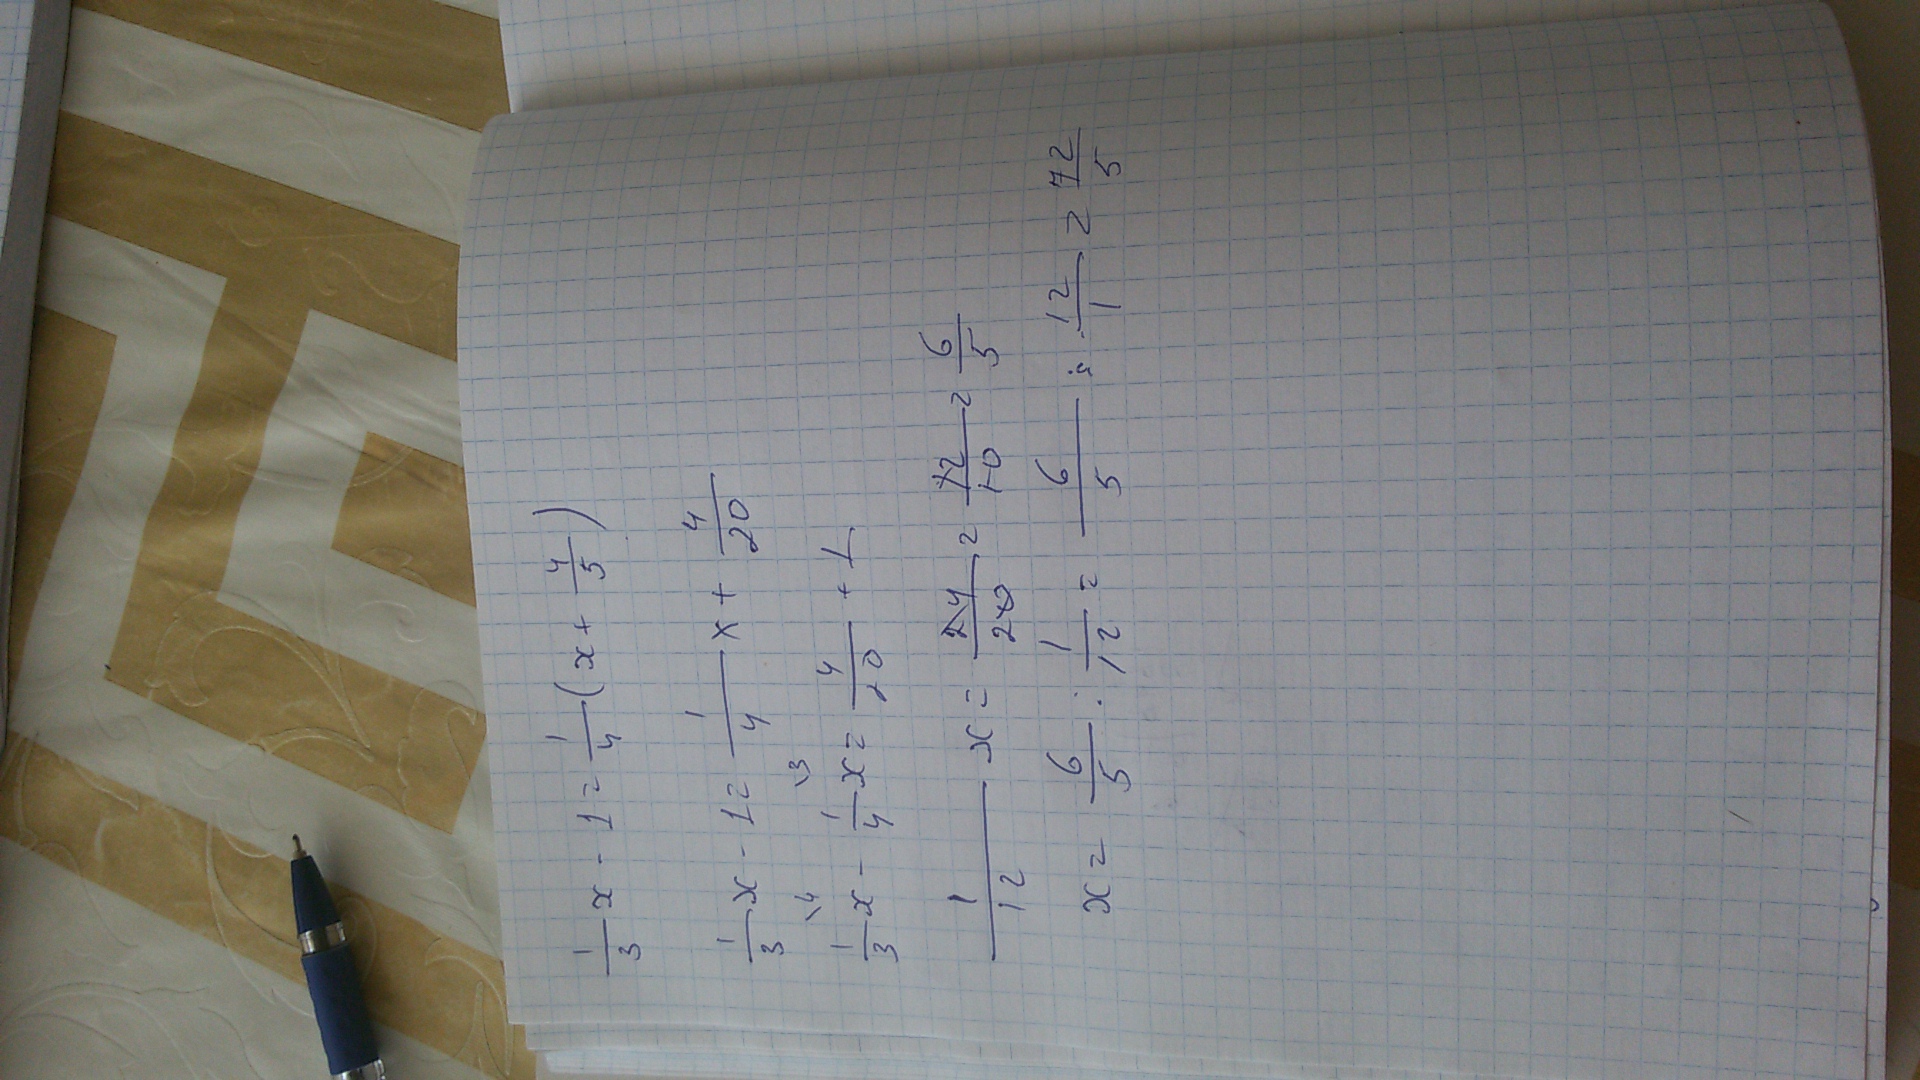 1/3 x - 1 = 1/4 (x + 4/5)
1/3 x - 1 = 1/4 x + 4/20
1/3 x \4 - 1/4 x \3 = 4/20 + 1
1/12 x = 24/20 = 12/10 = 6/5
x = 6/5 : 1/12 = 6/5 · 12/1 = 72/5